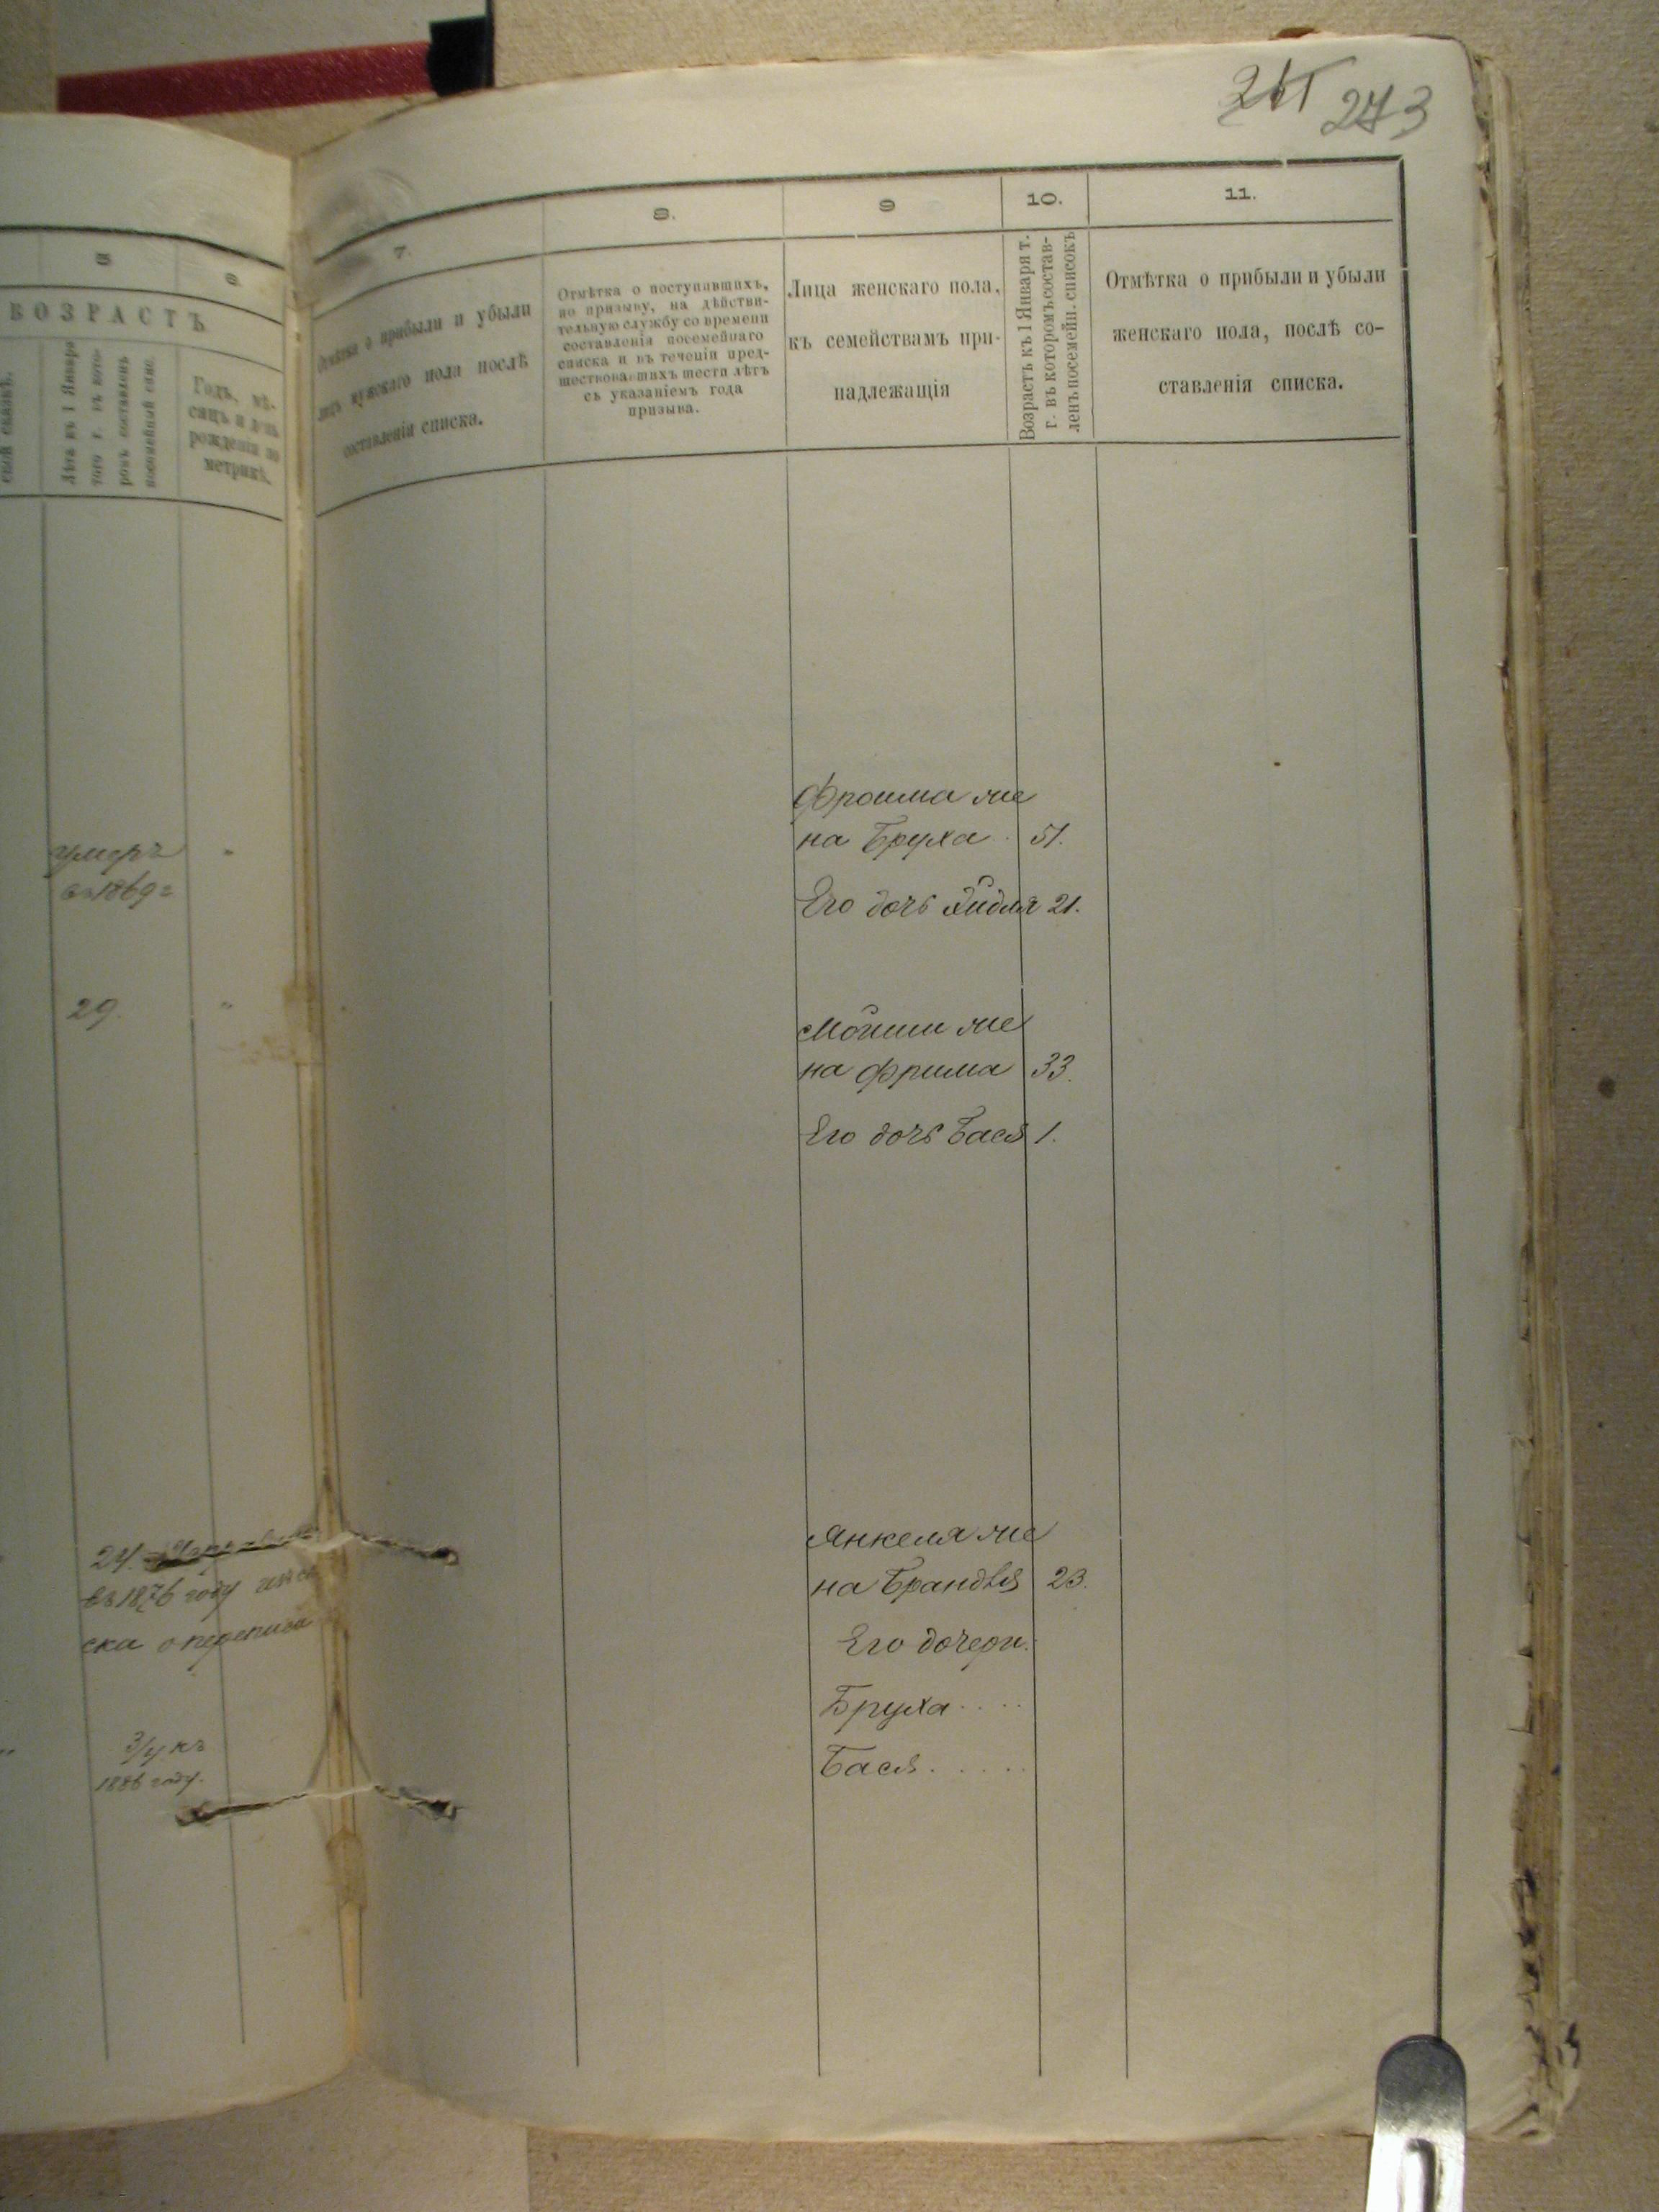 273
5
6.
ВОЗРАСТЪ
Лѣта къ 1 Января
того г. въ кото-
ромъ составленъ
посемейный спис.
Годъ, мѣ-
сяцъ и день
рожденія по
метрикѣ.
умеръ
въ 1869 г
29.
24.
въ 1876 году
ска о переписи
3/4 къ
1886 году.
7.
8.
9
10.
11.
Отмѣтка о прибыли и убыли
лицъ мужскаго пола послѣ
составленія списка.
Отмѣтка о поступившихъ,
по призыву, на дѣйстви-
тельную службу со времени
составленія посемейнаго
списка и въ теченіи пред-
шествовавшихъ шести лѣтъ
съ указаніемъ года
призыва.
Лица женскаго пола,
къ семействамъ при-
надлежащія
Возрастъ къ 1 Января т.
г. въ которомъ состав-
ленъ посемейн. списокъ
Отмѣтка о прибыли и убыли
женскаго пола, послѣ со-
ставленія списка.
Фроима же
на Бруха 51.
Его дочь 21.
Мойши же
на Фрима 33.
Его дочь Бася 1.
Янкеля же
на Брандля 23.
Его дочери.
Бруха....
Бася.....